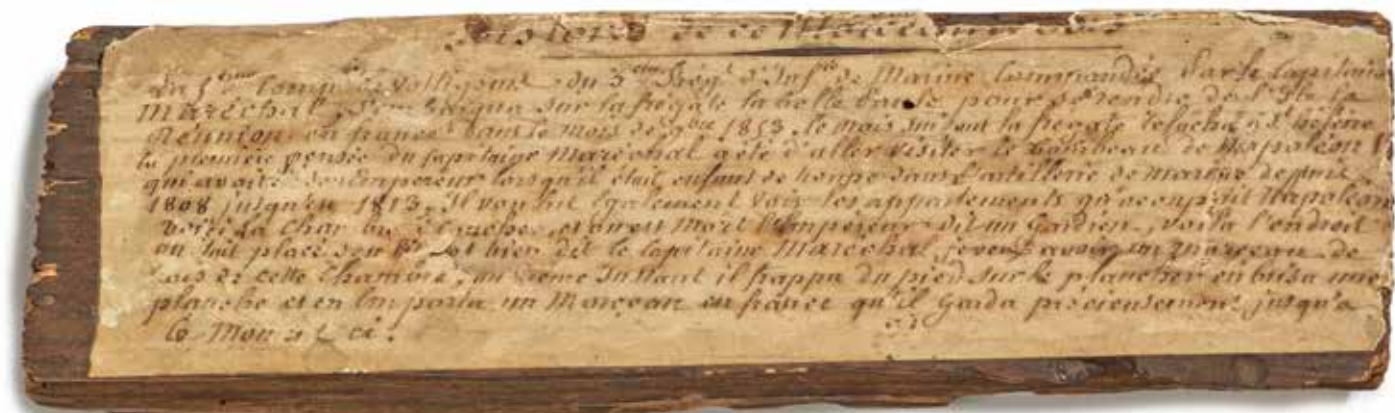 de ce Morceau de
La 5eme Compie de Voltigeurs du 3eme Régt d'Infie de Marine Commandée Par le Capitaine
Maréchal, s'embarqua sur la frégate la belle Poule pour se rendre de l'Ile la
Réunion en france dans le mois de 9bre 1853. le mois suivant la fregate relacha à
la première pensée du Capitaine Maréchal a été d'aller visiter le tombeau de Napoléon
qui avoit lorsqu'il était enfant de troupe dans l'artillerie de marine depuis
1808 jusqu'en 1813. Il voulait également voir les appartements qu'occupait Napoléon
Voici La Chambre à Coucher, et où est Mort l'Empereur dit un Gardien, voilà l'endroit
où était placé son lit, et bien dit le Capitaine Maréchal je veux avoir un morceau de
bois de cette Chambre, au même Instant il frappa du pied sur le plancher en brisa une
planche et en Emporta un Morceau en france qu'il Garda précieusement jusqu'a